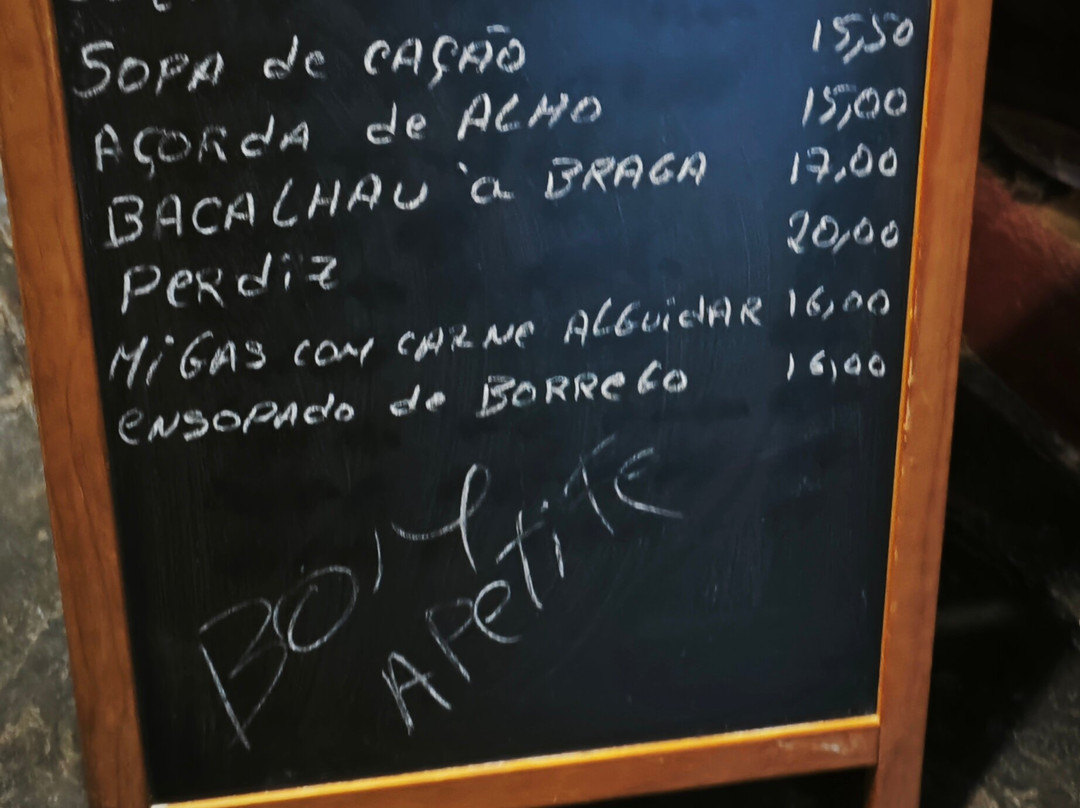 SOPA de CAÇÃO 15,50
AÇORdA de ALHO 15,00
BACALHAU à BRAGA 17,00
PeRdiz 20,00
MiGAS COM CARNe ALGuidAR 16,00
eNSOPAdo de BORReGO 16,00
BOM
APetiTE